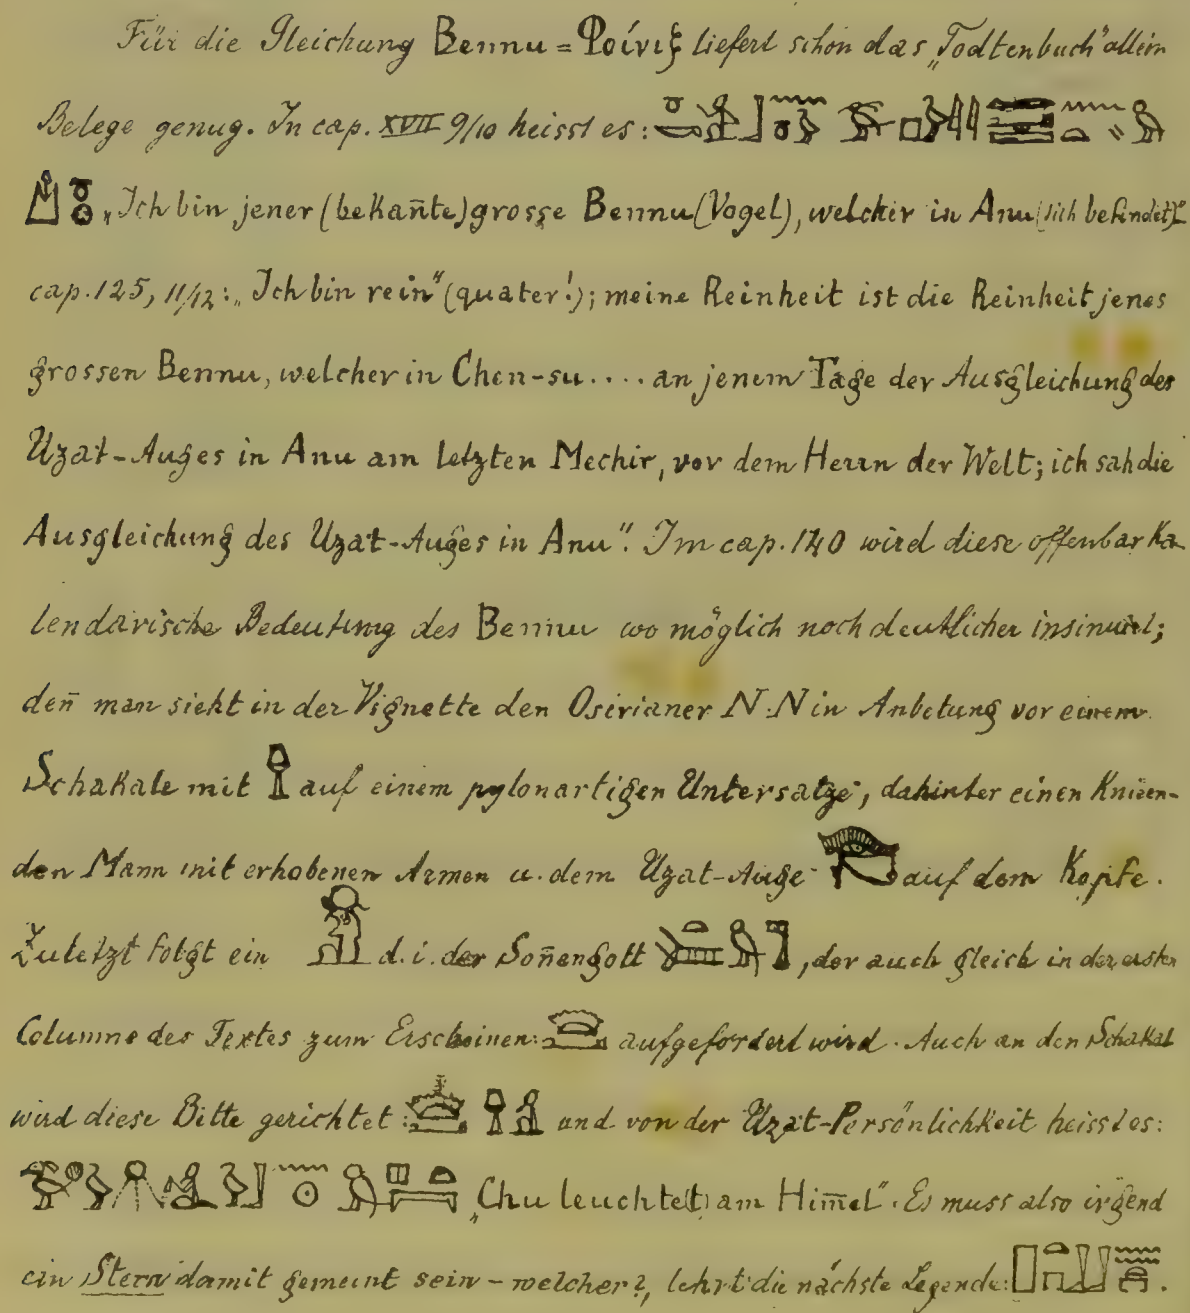 Für die Gleichung Bennu = Φοίνιξ liefert schon das „Todtenbuch" allein
Belege genug. In cap. XVII 9/10 heisst es:
„Ich bin jener (bekañte) grosse Bennu (Vogel), welcher in Anu (sich befindet)".
cap. 125, 11/12: „Ich bin rein" (quater!); meine Reinheit ist die Reinheit jenes
grossen Bennu, welcher in Chen-su.... an jenem Tage der Ausgleichung des
Uzat-Auges in Anu am letzten Mechir, vor dem Herrn der Welt; ich sah die
Ausgleichung des Uzat-Auges in Anu". Im cap. 140 wird diese offenbar ka-
lendarische Bedeutung des Bennu wo möglich noch deutlicher insinuirt;
deñ man sieht in der Vignette den Osirianer N.N in Anbetung vor einem
Schakale mit auf einem pylonartigen Untersatze, dahinter einen knieen-
den Mann mit erhobenen Armen u. dem Uzat-Auge auf dem Kopfe.
Zuletzt folgt ein d.i. der Soñengott , der auch gleich in der ersten
Columne des Textes zum Erscheinen: aufgefordert wird. Auch an den Schakal
wird diese Bitte gerichtet: und von der Uzat-Persönlichkeit heisst es:
„Chu leuchtet am Him̄el". Es muss also irgend
ein Stern damit gemeint sein – welcher?, lehrt die nächste Legende: .